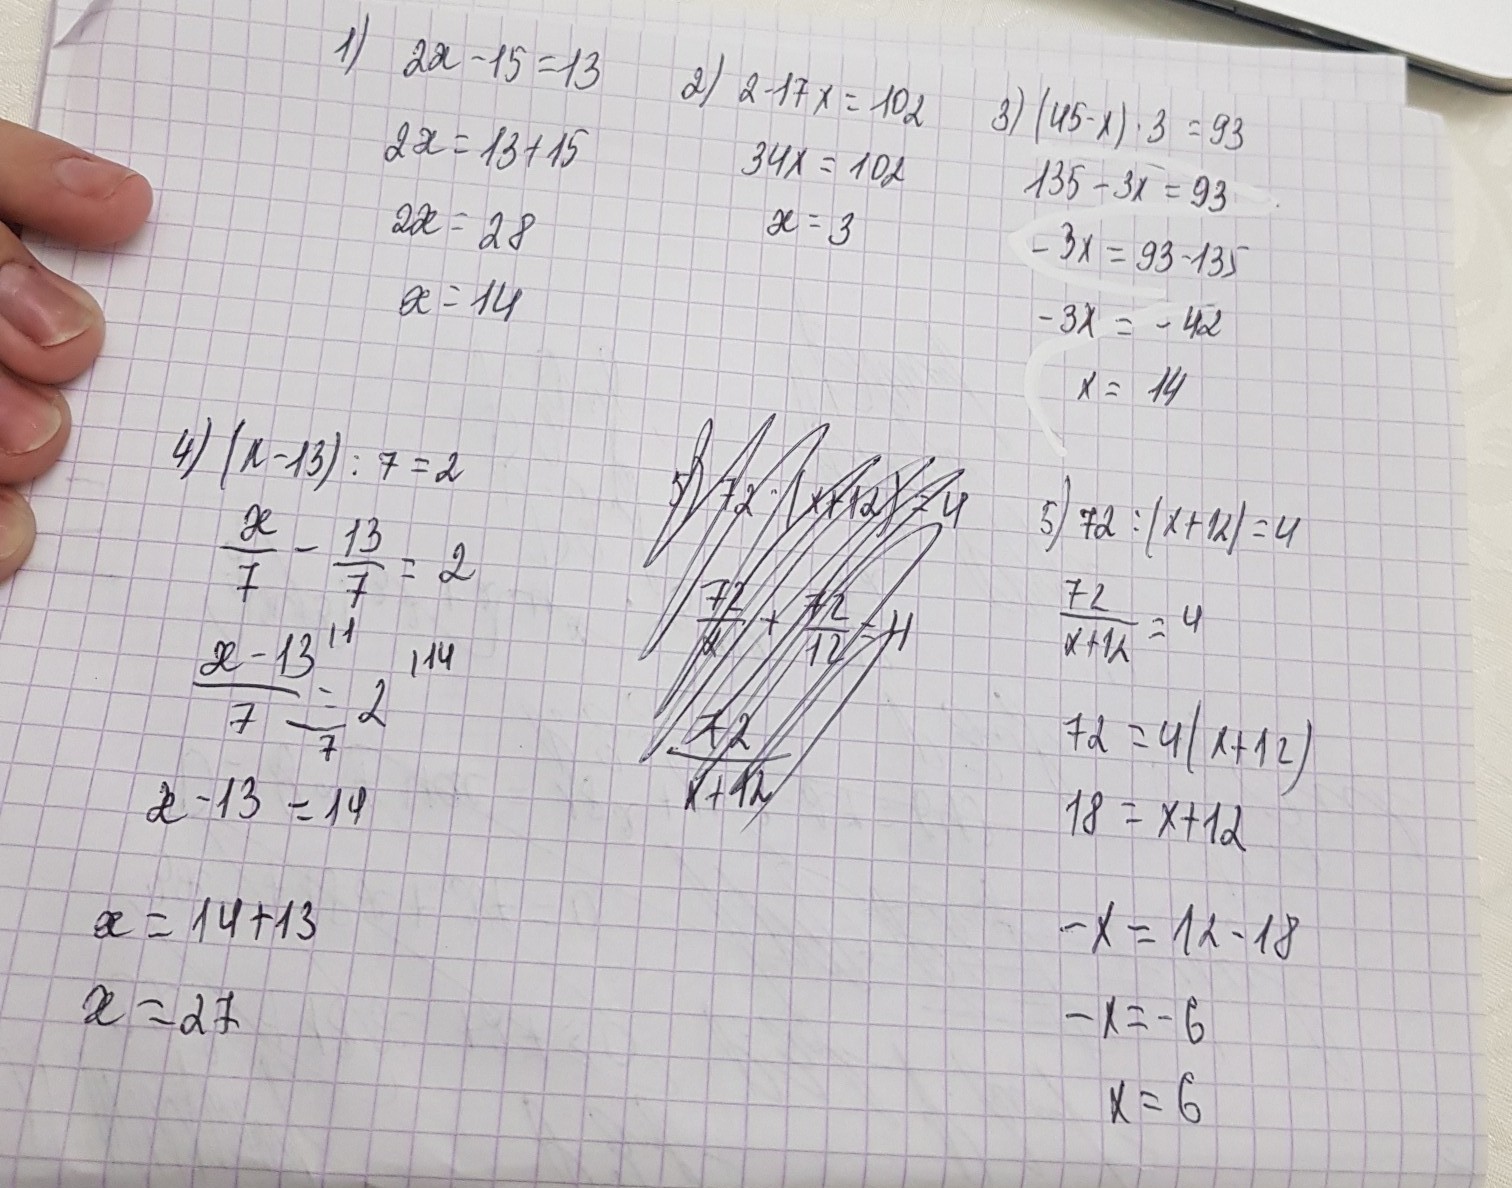 1) 2x - 15 = 13
2x = 13 + 15
2x = 28
x = 14
2) 2 · 17x = 102
34x = 102
x = 3
3) (45 - x) · 3 = 93
135 - 3x = 93
-3x = 93 - 135
-3x = -42
x = 14
4) (x - 13) : 7 = 2
x/7 - 13/7 = 2
x - 13/7 = 2/7
x - 13 = 14
x = 14 + 13
x = 27
5) 72 : (x + 12) = 4
72/x + 72/12 = 4
72/x + 12
5) 72 : (x + 12) = 4
72/x + 12 = 4
72 = 4(x + 12)
18 = x + 12
-x = 12 - 18
-x = -6
x = 6